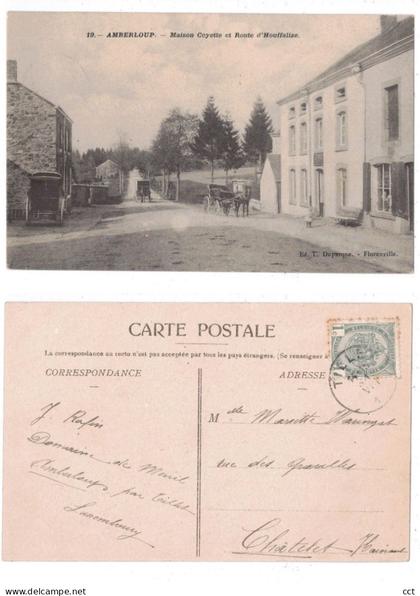 19. - AMBERLOUP. - Maison Coyette et Route d'Houffalize.
Ed. T. Duparque. - Florenville.
CARTE POSTALE
La correspondance au verso n'est pas acceptée par tous les pays étrangers. (Se renseigner
CORRESPONDANCE
ADRESSE
1
TILLET
J. Rafin
Domaine du Menil
Amberloup, par Tillet
Luxembourg
Melle Mariette
rue des Gravelles
Châtelet Hainaut
cct